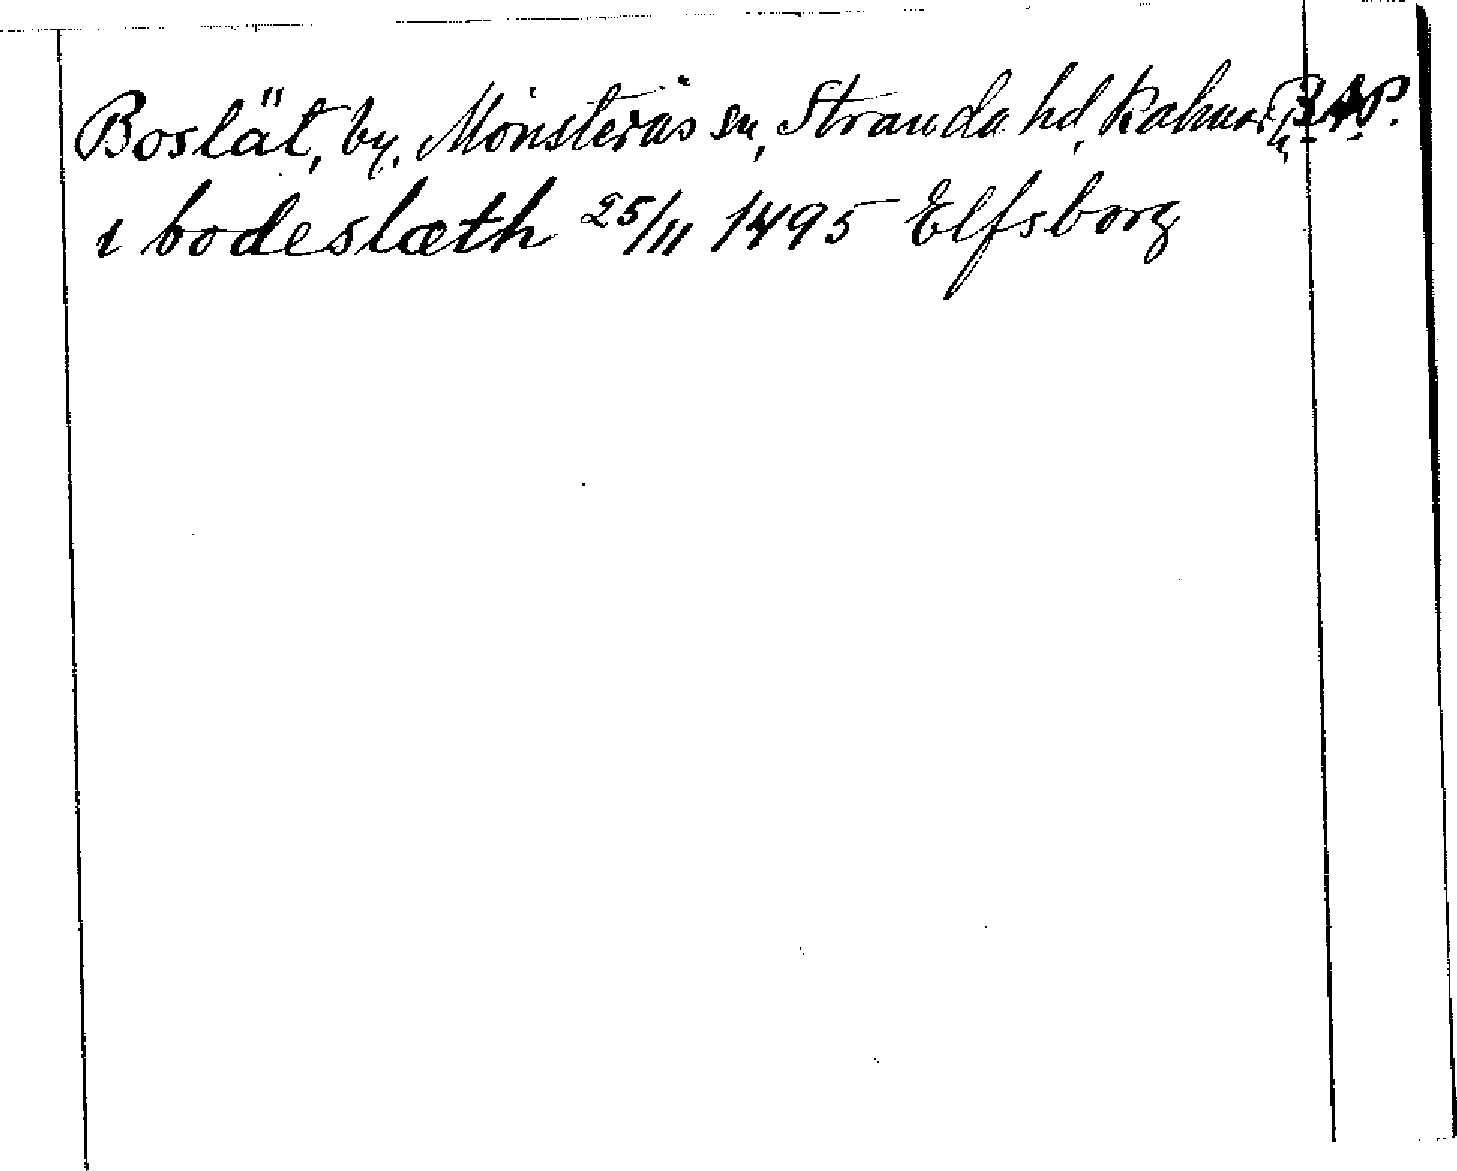 Boslät, by, Mönsterås sn, Stranda hd, Kalmar l,
i bodeslæth 25/11 1495 Elfsborg